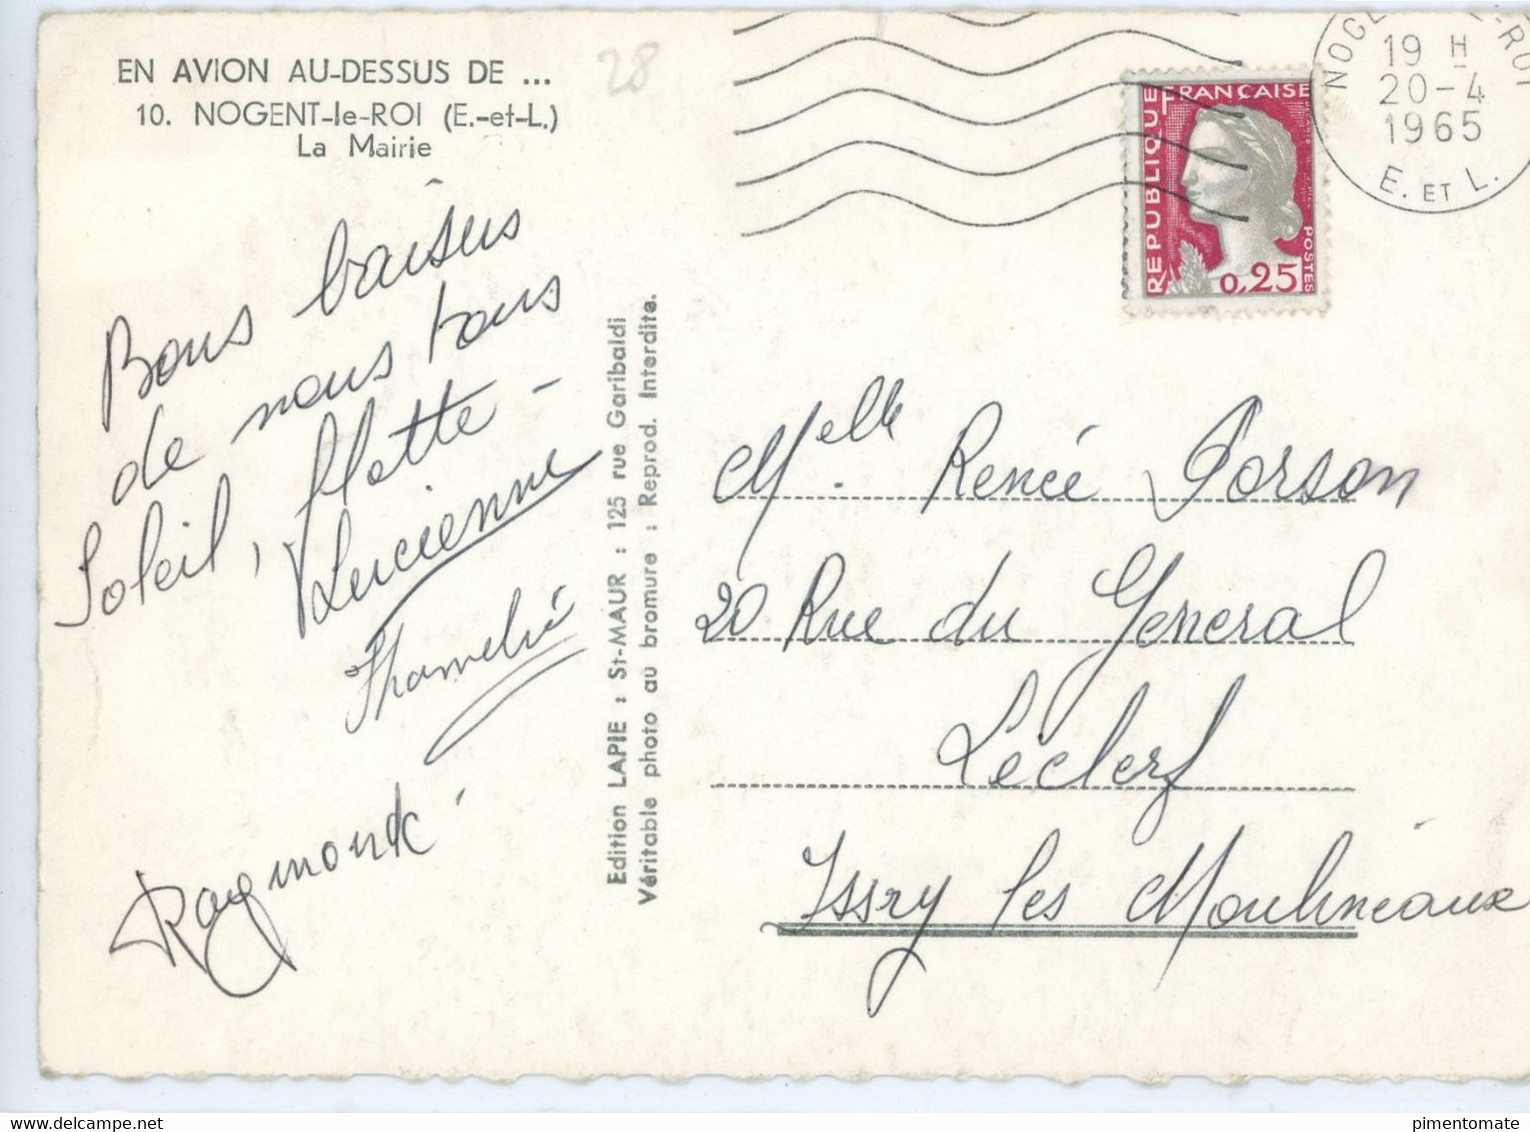 EN AVION AU-DESSUS DE ...
10. NOGENT-le-ROI (E.-et-L.)
La Mairie
28
Bons baisers
de nous tous
Soleil, flotte -
Lucienne
Raymonde
Edition LAPIE : St-MAUR : 125 rue Garibaldi
Véritable photo au bromure : Reprod. Interdite.
REPUBLIQUE FRANÇAISE
POSTES
0,25
19 H
20-4
1965
E. ET L.
Melle Renée Porson
20 Rue du General
Leclerf
Issry les Moulineaux
pimentomate